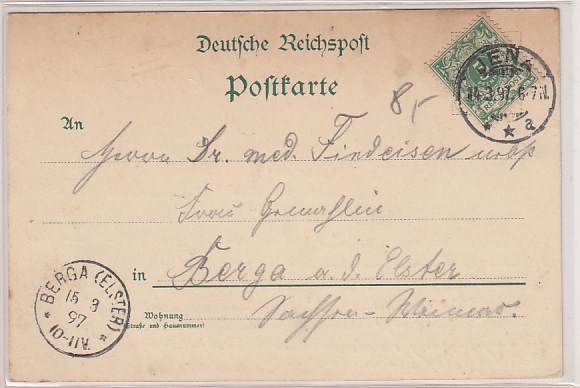 Deutsche Reichspost
Postkarte
JENA
14.3.97. 6-7N.
a
8,-
An
Herrn Dr. med. Findeisen nebst
Frau Gemahlin
in Berga a. d. Elster
Wohnung
(Straße und Hausnummer)
Sachsen-Weimar.
BERGA (ELSTER)
15 3
97
10-11V.